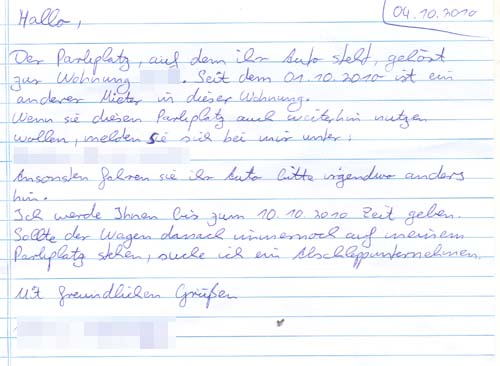 04.10.2010
Hallo,
Der Parkplatz, auf dem ihr Auto steht, gehört
zur Wohnung . Seit dem 01.10.2010 ist ein
anderer Mieter in dieser Wohnung.
Wenn sie diesen Parkplatz auch weiterhin nutzen
wollen, melden sie sich bei mir unter:
Ansonsten fahren sie ihr Auto bitte irgendwo anders
hin.
Ich werde Ihnen bis zum 10.10.2010 Zeit geben.
Sollte der Wagen danach immernoch auf meinem
Parkplatz stehen, suche ich ein Abschleppunternehmen.
Mit freundlichen Grüßen